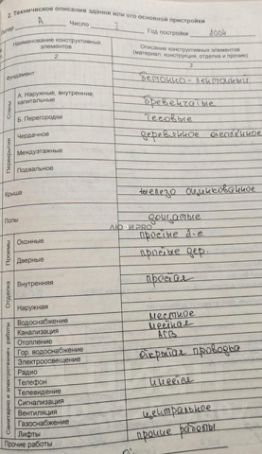 2. Техническое описание здания или его основной пристройки
Литер А Число 1 Год постройки 2004
Наименование конструктивных элементов
Описание конструктивных элементов (материал, конструкция, отделка и прочие)
2
3
Фундамент бетонно-ленточный
Стены
А. Наружные, внутренние, капитальные бревенчатые
Б. Перегородки тесовые
Перекрытия
Чердачное деревянное утеплённое
Междуэтажные
Подвальное
Крыша железо оцинкованное
Полы дощатые
Проемы
Оконные простые
Дверные простые дер.
Отделка
Внутренняя простая
Наружная
Санитарно и электротехнические работы
Водоснабжение местное
Канализация местная
Отопление АГВ
Гор. водоснабжение
Электроосвещение открытая проводка
Радио
Телефон имеется
Телевидение
Сигнализация
Вентиляция
Газоснабжение центральное
Лифты
Прочие работы прочие работы